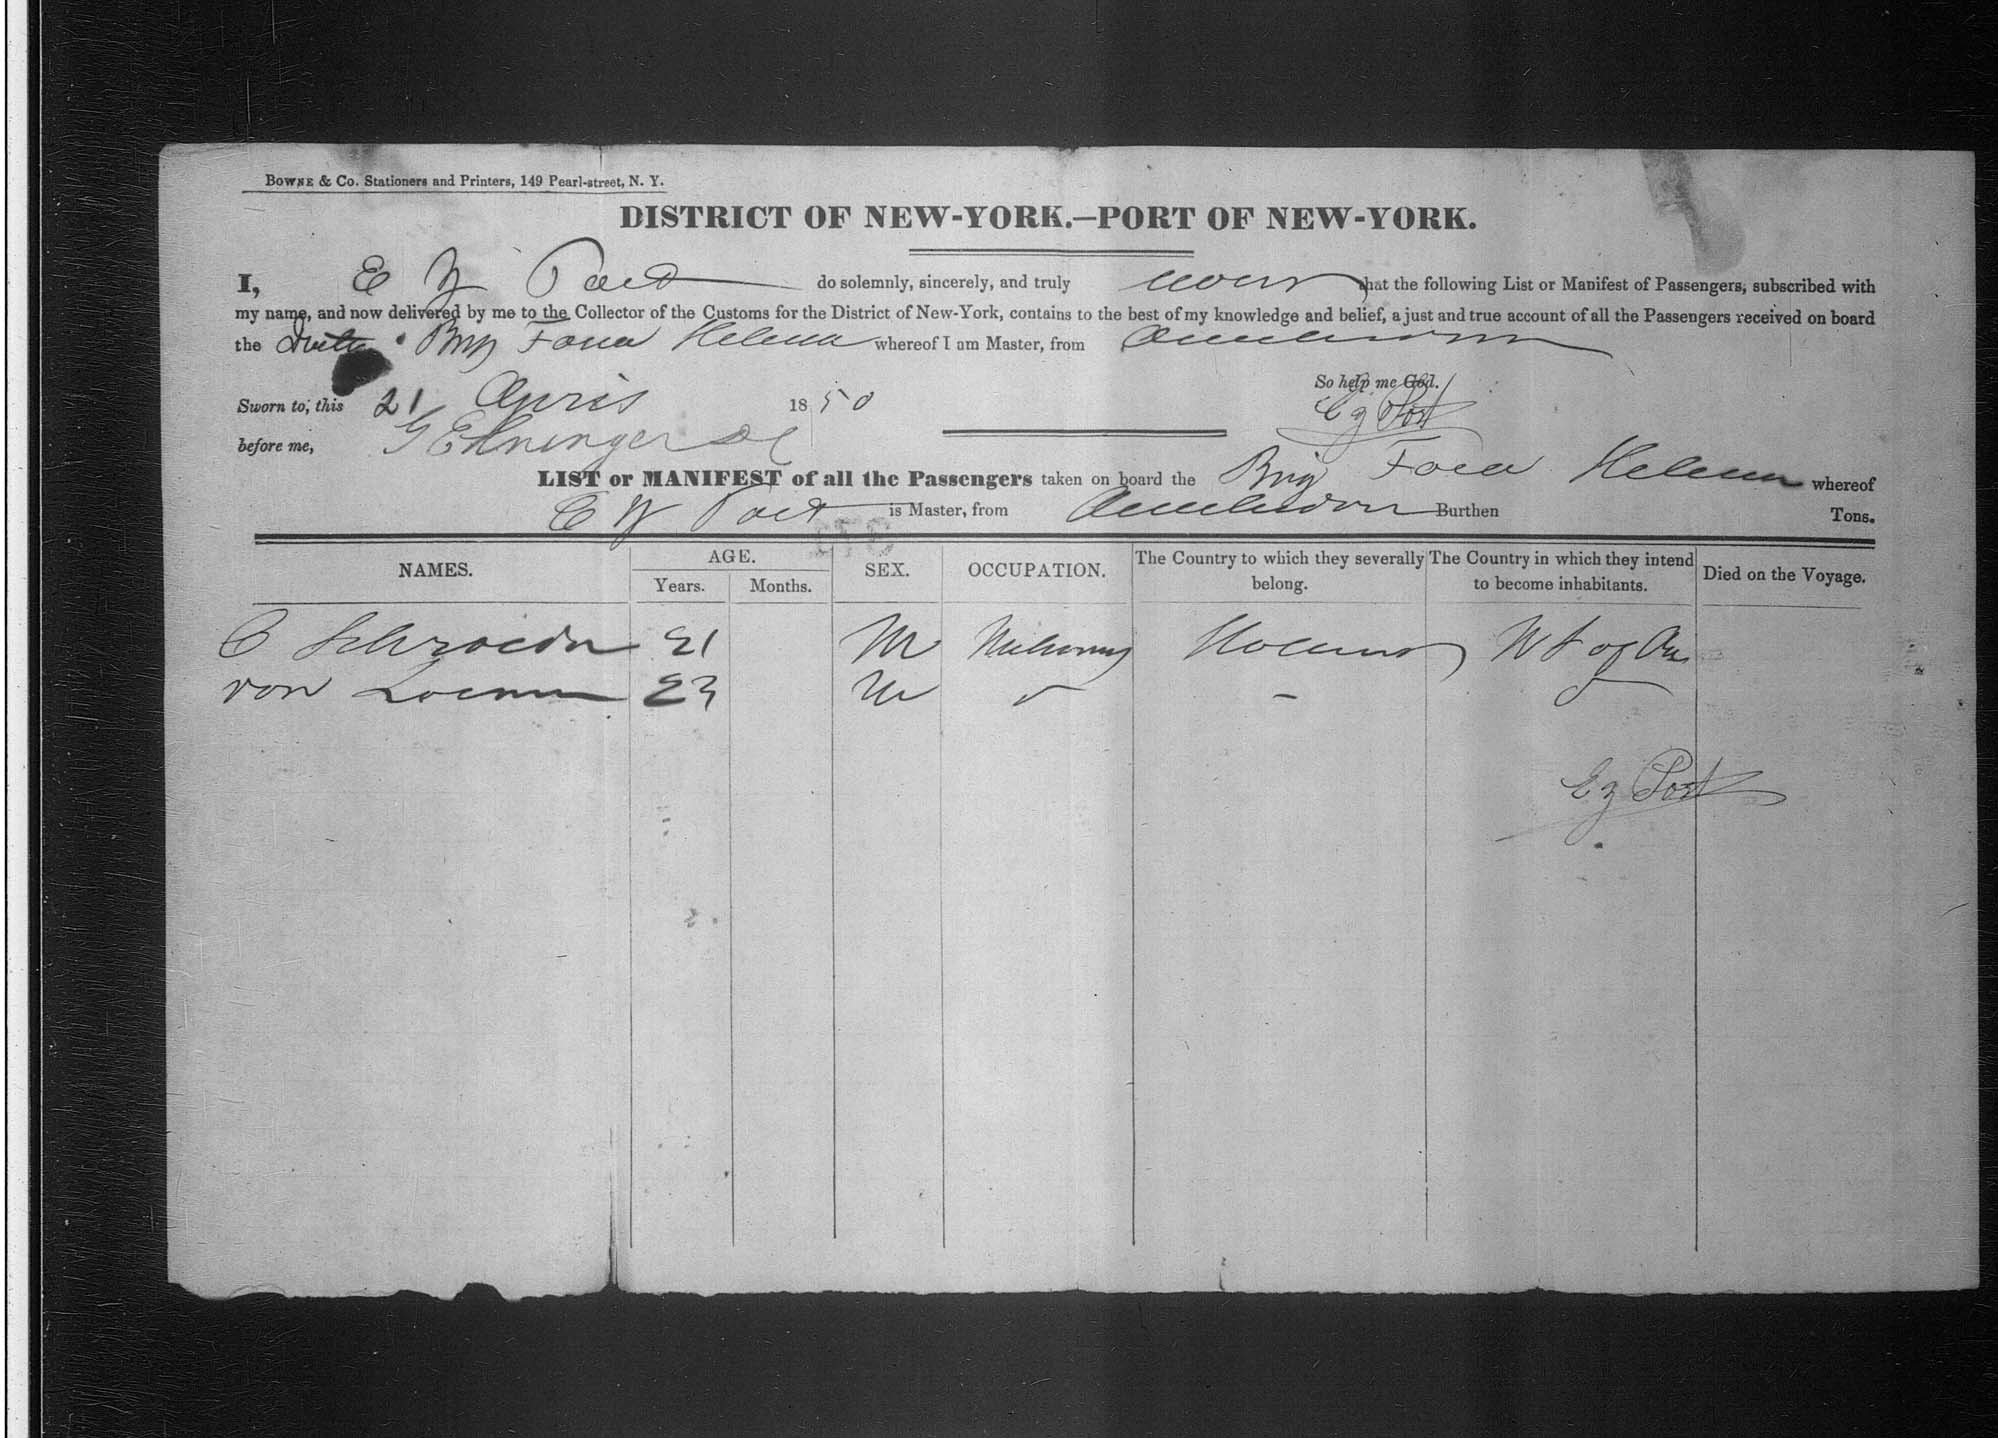 BOWNE & Co. Stationers and Printers, 149 Pearl-street, N. Y.
DISTRICT OF NEW-YORK.—PORT OF NEW-YORK.
I, E do solemnly, sincerely, and truly that the following List or Manifest of Passengers, subscribed with
my name, and now delivered by me to the Collector of the Customs for the District of New-York, contains to the best of my knowledge and belief, a just and true account of all the Passengers received on board
the Brig Helena whereof I am Master, from
So help me God.
Sworn to, this 21 1850
E z Post
before me, G Ehninger
LIST or MANIFEST of all the Passengers taken on board the Brig Helena whereof
E is Master, from Burthen Tons.
NAMES. AGE. SEX. OCCUPATION. The Country to which they severally belong. The Country in which they intend to become inhabitants. Died on the Voyage.
Years. Months.
C Schroeder 21 M
von 23 M
E z Post